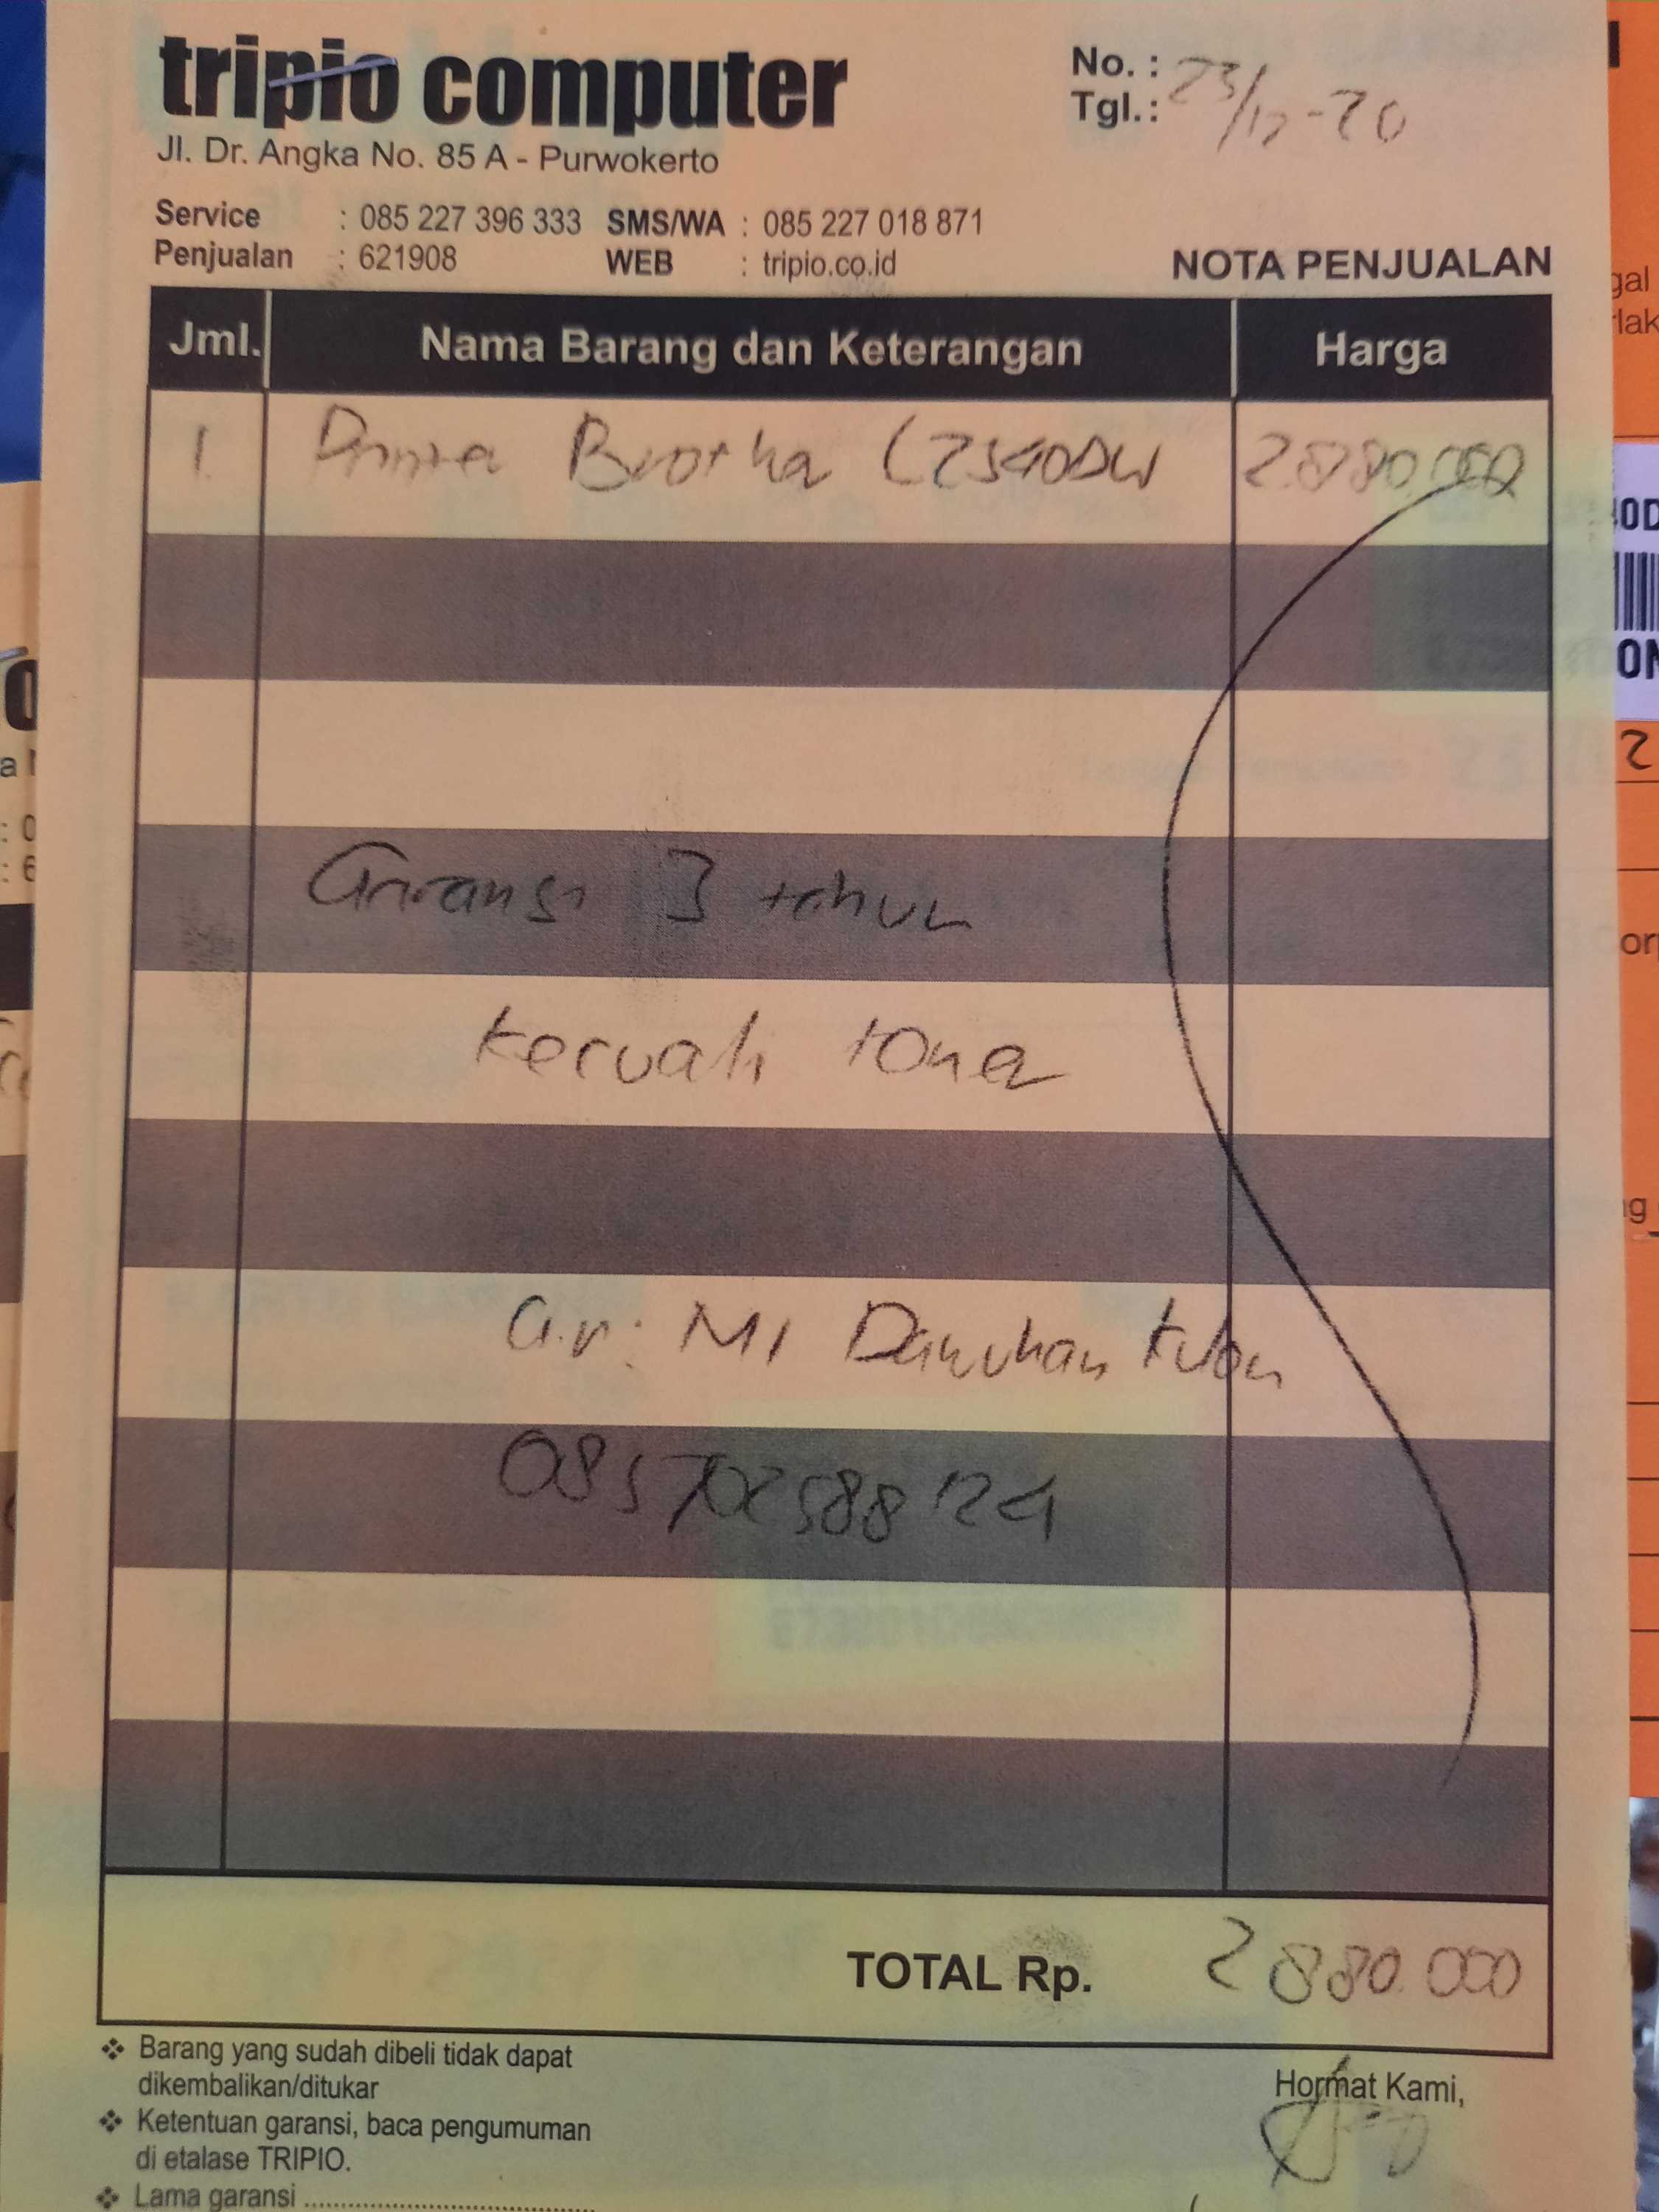 tripio computer
Jl. Dr. Angka No. 85 A - Purwokerto
No. :
Tgl. : 23/12-20
Service : 085 227 396 333 SMS/WA : 085 227 018 871
Penjualan : 621908 WEB : tripio.co.id
NOTA PENJUALAN
Jml. Nama Barang dan Keterangan Harga
1. Printer Brother L2540DW 2.880.000
Garansi 3 tahun
kecuali toner
a.n: MI Dawuhan Kulon
085702588124
TOTAL Rp. 2.880.000
❖ Barang yang sudah dibeli tidak dapat
dikembalikan/ditukar
❖ Ketentuan garansi, baca pengumuman
di etalase TRIPIO.
❖ Lama garansi
Hormat Kami,